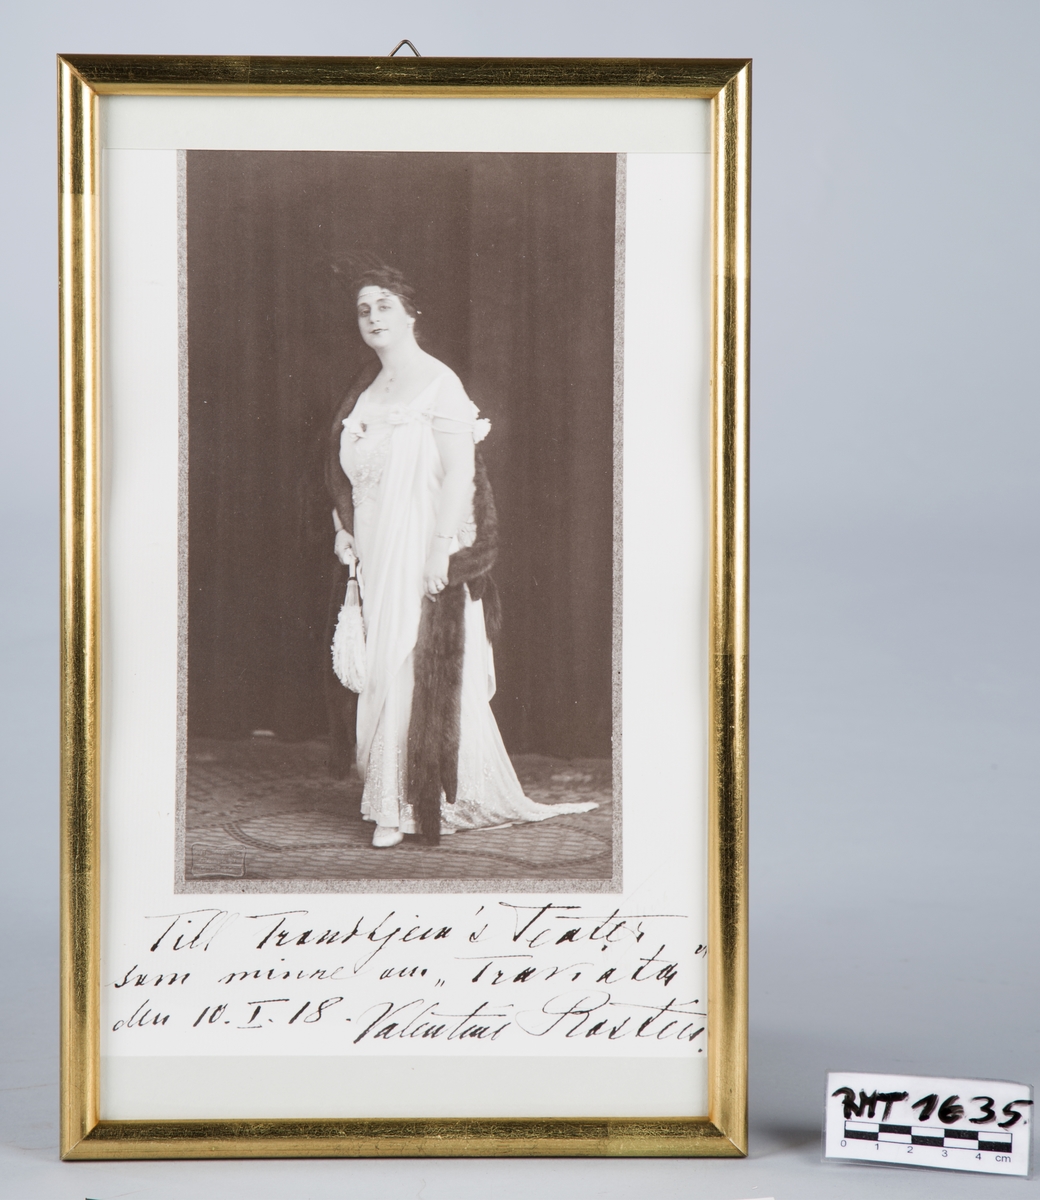 Till Trondhjem's Teater
som minne om „Traviata"
den 10. I. 18. Valentine Rosten.
RMT 1635.
0 1 2 3 4 cm